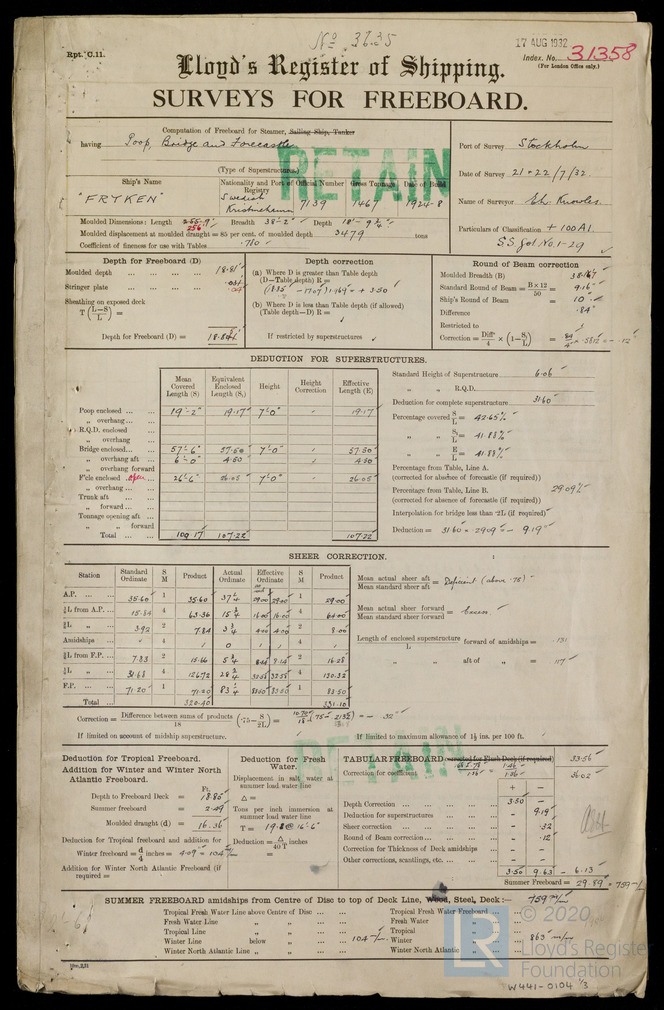 Rpt. C.11.
No 3635
17 AUG 1932
Index. No. 31358
(For London Office only.)
Lloyd's Register of Shipping.
SURVEYS FOR FREEBOARD.
Computation of Freeboard for Steamer, Sailing Ship, Tanker
having Poop, Bridge and Forecastle
(Type of Superstructures.)
RETAIN
Port of Survey Stockholm
Date of Survey 21 & 22/7/32.
Name of Surveyor
Particulars of Classification + 100 A1
S.S. No. 1-29
Ship's Name
"FRYKEN"
Nationality and Port of Registry
Swedish
Kristinehamn
Official Number
7139
Gross Tonnage
1467
Date of Build
1924-8
Moulded Dimensions: Length 256 Breadth 38'-2" Depth 18'-9¾"
Moulded displacement at moulded draught = 85 per cent. of moulded depth 3479 tons
Coefficient of fineness for use with Tables .710
Depth for Freeboard (D)
Moulded depth 18.81
Stringer plate .04
Sheathing on exposed deck
T (L-S / L) =
Depth for Freeboard (D) = 18.84
Depth correction
(a) Where D is greater than Table depth
(D-Table depth) R =
(b) Where D is less than Table depth (if allowed)
(Table depth-D) R =
If restricted by superstructures
Round of Beam correction
Moulded Breadth (B) 38.167
Standard Round of Beam = B×12 / 50 = 9.16
Ship's Round of Beam = 10
Difference .84
Restricted to
Correction = Diff / 4 × (1 - S₁/L) = .84/4 × .5812 = - .12
DEDUCTION FOR SUPERSTRUCTURES.
Mean Covered Length (S) Equivalent Enclosed Length (S₁) Height Height Correction Effective Length (E)
Poop enclosed 19'-2" 19.17 7'-0" 19.17
" overhang
R.Q.D. enclosed
" overhang
Bridge enclosed 57'-6" 57.50 7'-0" 57.50
" overhang aft 6'-0" 4.50 4.50
" overhang forward
F'cle enclosed open 26'-6" 26.05 7'-0" 26.05
" overhang
Trunk aft
" forward
Tonnage opening aft
" " forward
Total 109.17 107.22 107.22
Standard Height of Superstructure 6.06
" " R.Q.D.
Deduction for complete superstructure 31.60
Percentage covered S/L = 42.65%
" " S₁/L = 41.88%
" " E/L = 41.88%
Percentage from Table, Line A.
(corrected for absence of forecastle (if required))
Percentage from Table, Line B. 29.09%
(corrected for absence of forecastle (if required))
Interpolation for bridge less than ·2L (if required)
Deduction = 31.60 × 29.09 = - 9.19
SHEER CORRECTION.
Station Standard Ordinate S M Product Actual Ordinate Effective Ordinate S M Product
A.P. 35.60 1 35.60 37¼ 29.00 29.00 1 29.00
⅙L from A.P. 15.84 4 63.36 15¾ 16.00 16.00 4 64.00
⅓L " 3.92 2 7.84 3¾ 4.00 4.00 2 8.00
Amidships 4 0 4
⅓L from F.P. 7.83 2 15.66 5¾ 8.14 2 16.28
⅙L " 31.68 4 126.72 28¾ 32.58 32.58 4 130.32
F.P. 71.20 1 71.20 83¼ 83.50 83.50 1 83.50
Total 320.40 331.10
Mean actual sheer aft / Mean standard sheer aft = Deficient (above .75)
Mean actual sheer forward / Mean standard sheer forward = Excess.
Length of enclosed superstructure / L forward of amidships = .131
" " aft of " = .117
Correction = Difference between sums of products / 18 (·75 - S/2L) = 10.70/18 (.75 - .2132) = - .32
If limited on account of midship superstructure.
If limited to maximum allowance of 1½ ins. per 100 ft.
RETAIN
Deduction for Tropical Freeboard.
Addition for Winter and Winter North Atlantic Freeboard.
Ft.
Depth to Freeboard Deck = 18.85
Summer freeboard = 2.49
Moulded draught (d) = 16.36
Deduction for Tropical freeboard and addition for
Winter freeboard = d/4 inches = 4.09 = 104 m/m
Addition for Winter North Atlantic Freeboard (if required) =
Deduction for Fresh Water.
Displacement in salt water at summer load water line
Δ =
Tons per inch immersion at summer load water line
T = 19.8 @ 16'-6"
Deduction = Δ / 40 T inches
=
TABULAR FREEBOARD corrected for Flush Deck (if required) 33.56
Correction for coefficient 36.02
+ -
Depth Correction 3.50 -
Deduction for superstructures - 9.19
Sheer correction - .32
Round of Beam correction - .12
Correction for Thickness of Deck amidships - -
Other corrections, scantlings, etc. - -
3.50 9.63 - 6.13
Summer Freeboard = 29.89 = 759 m/m
SUMMER FREEBOARD amidships from Centre of Disc to top of Deck Line, Wood, Steel, Deck:— 759 m/m
Tropical Fresh Water Line above Centre of Disc
Fresh Water Line " "
Tropical Line " "
Winter Line below " 104 m/m
Winter North Atlantic Line " "
Tropical Fresh Water Freeboard
Fresh Water "
Tropical "
Winter " 863 m/m
Winter North Atlantic "
© 2020
LR
Lloyd's Register
Foundation
W441-0104 1/3